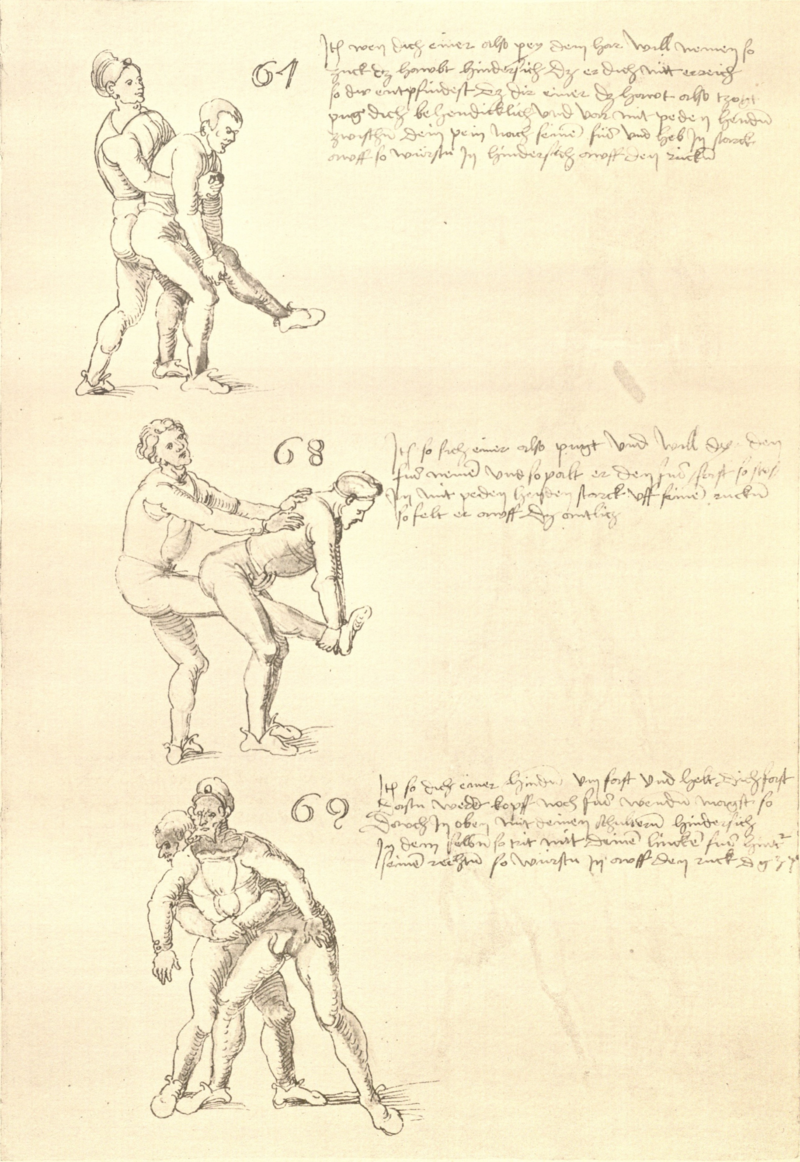 67
Itē wen dich einer also pey dem har will nemen so
zuck dz hawbt hindersich dz er dich nitt erreich
so dw entpfindest dz dir einer dz hawt also
pug dich behendicklich vnd var mit peden henden
zwischn dein pein noch seinē fus vnd heb In starck
awff so würstu In hindersich awff den rückn
68
Itē so sich einer also pugt vnd will dir den
fus nemen vnd so palt er den fus fast so stos
In mit peden henden starck vff seinē ruckn
so felt er awff dz antlitz
69
Itē so dich einer hindn vm fast vnd helt dich fast
dastu weder kopff noch fus wenden magst so
druck In oben mit deinen schultern hindersich
In dem selbn so trit mitt deinē lincken fus hintr
seinē rechtn so würstu In awff den ruck